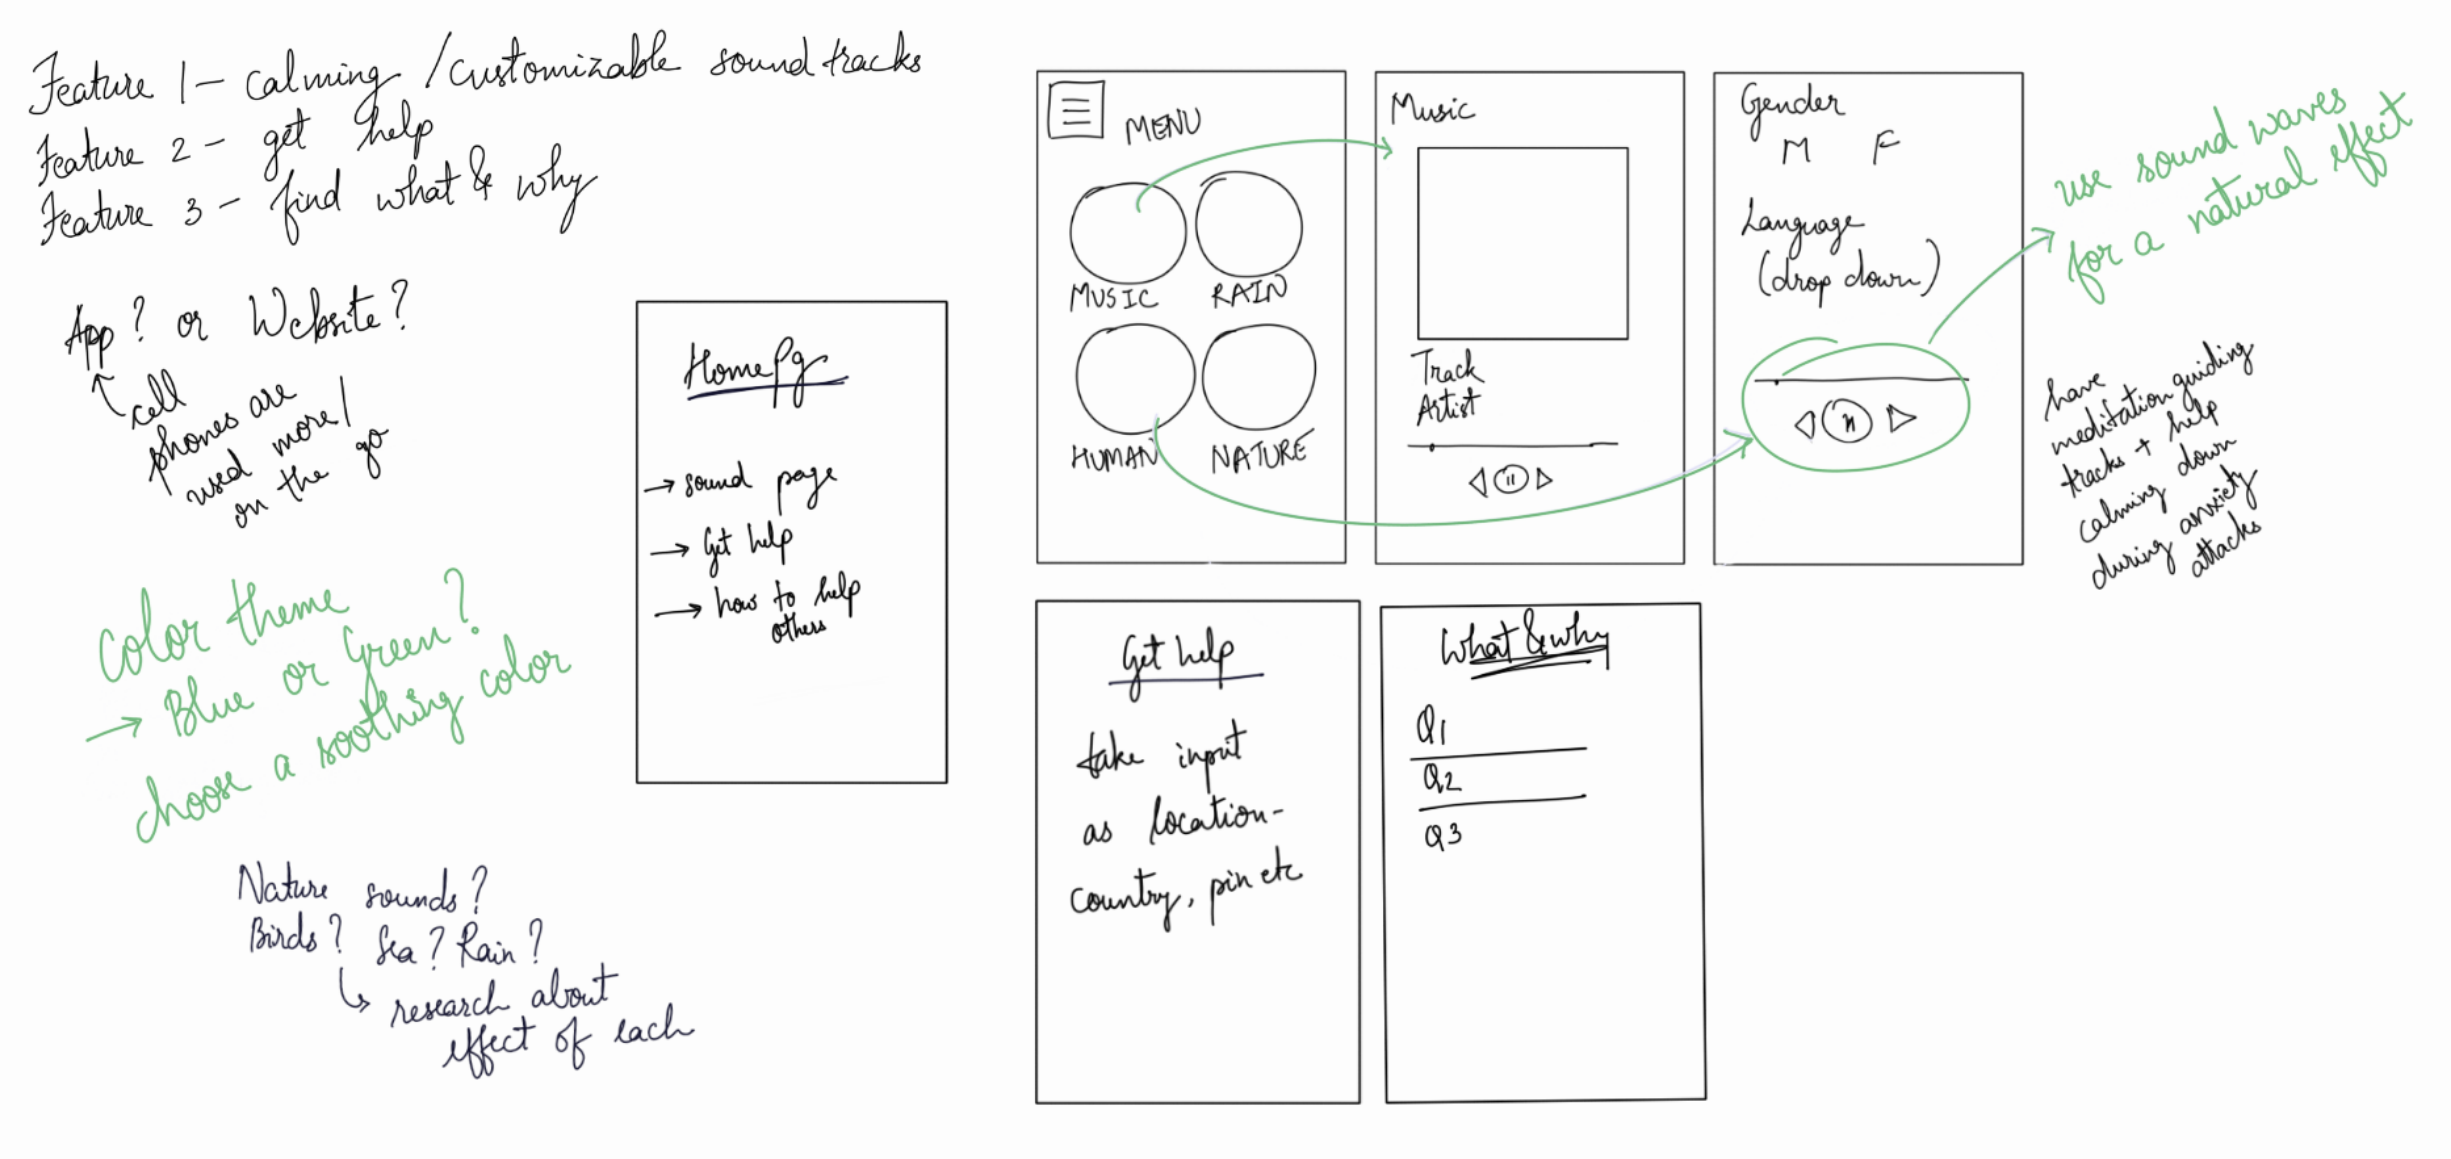 Feature 1 - calming / customizable sound tracks
Feature 2 - get help
Feature 3 - find what & why
App? or Website?
cell
phones are
used more/
on the go
Color theme
→ Blue or Green?
choose a soothing color
Nature sounds?
Birds? Sea? Rain?
research about
effect of each
Home Pg
→ sound page
→ Get help
→ how to help
others
MENU
MUSIC RAIN
HUMAN NATURE
Music
Track
Artist
Gender
M F
Language
(drop down)
use sound waves
for a natural effect
have
meditation guiding
tracks + help
calming down
during anxiety
attacks
Get help
take input
as location-
country, pin etc
What & why
Q1
Q2
Q3